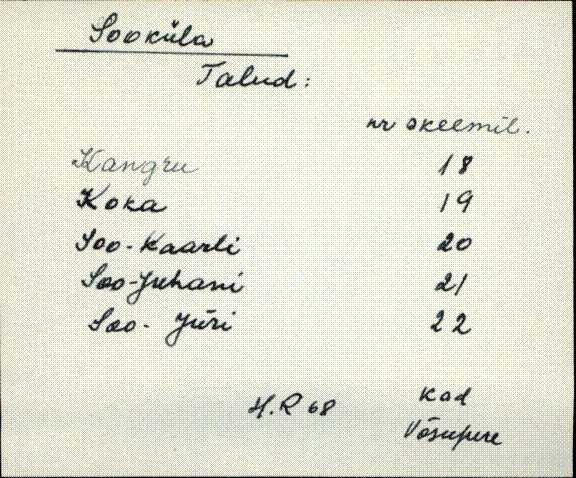 Sooküla
Talud:
nr skeemil.
Kangru 18
Koka 19
Soo-Kaarli 20
Soo-Juhani 21
Soo-Jüri 22
H.R 68 Kad
Võsupere